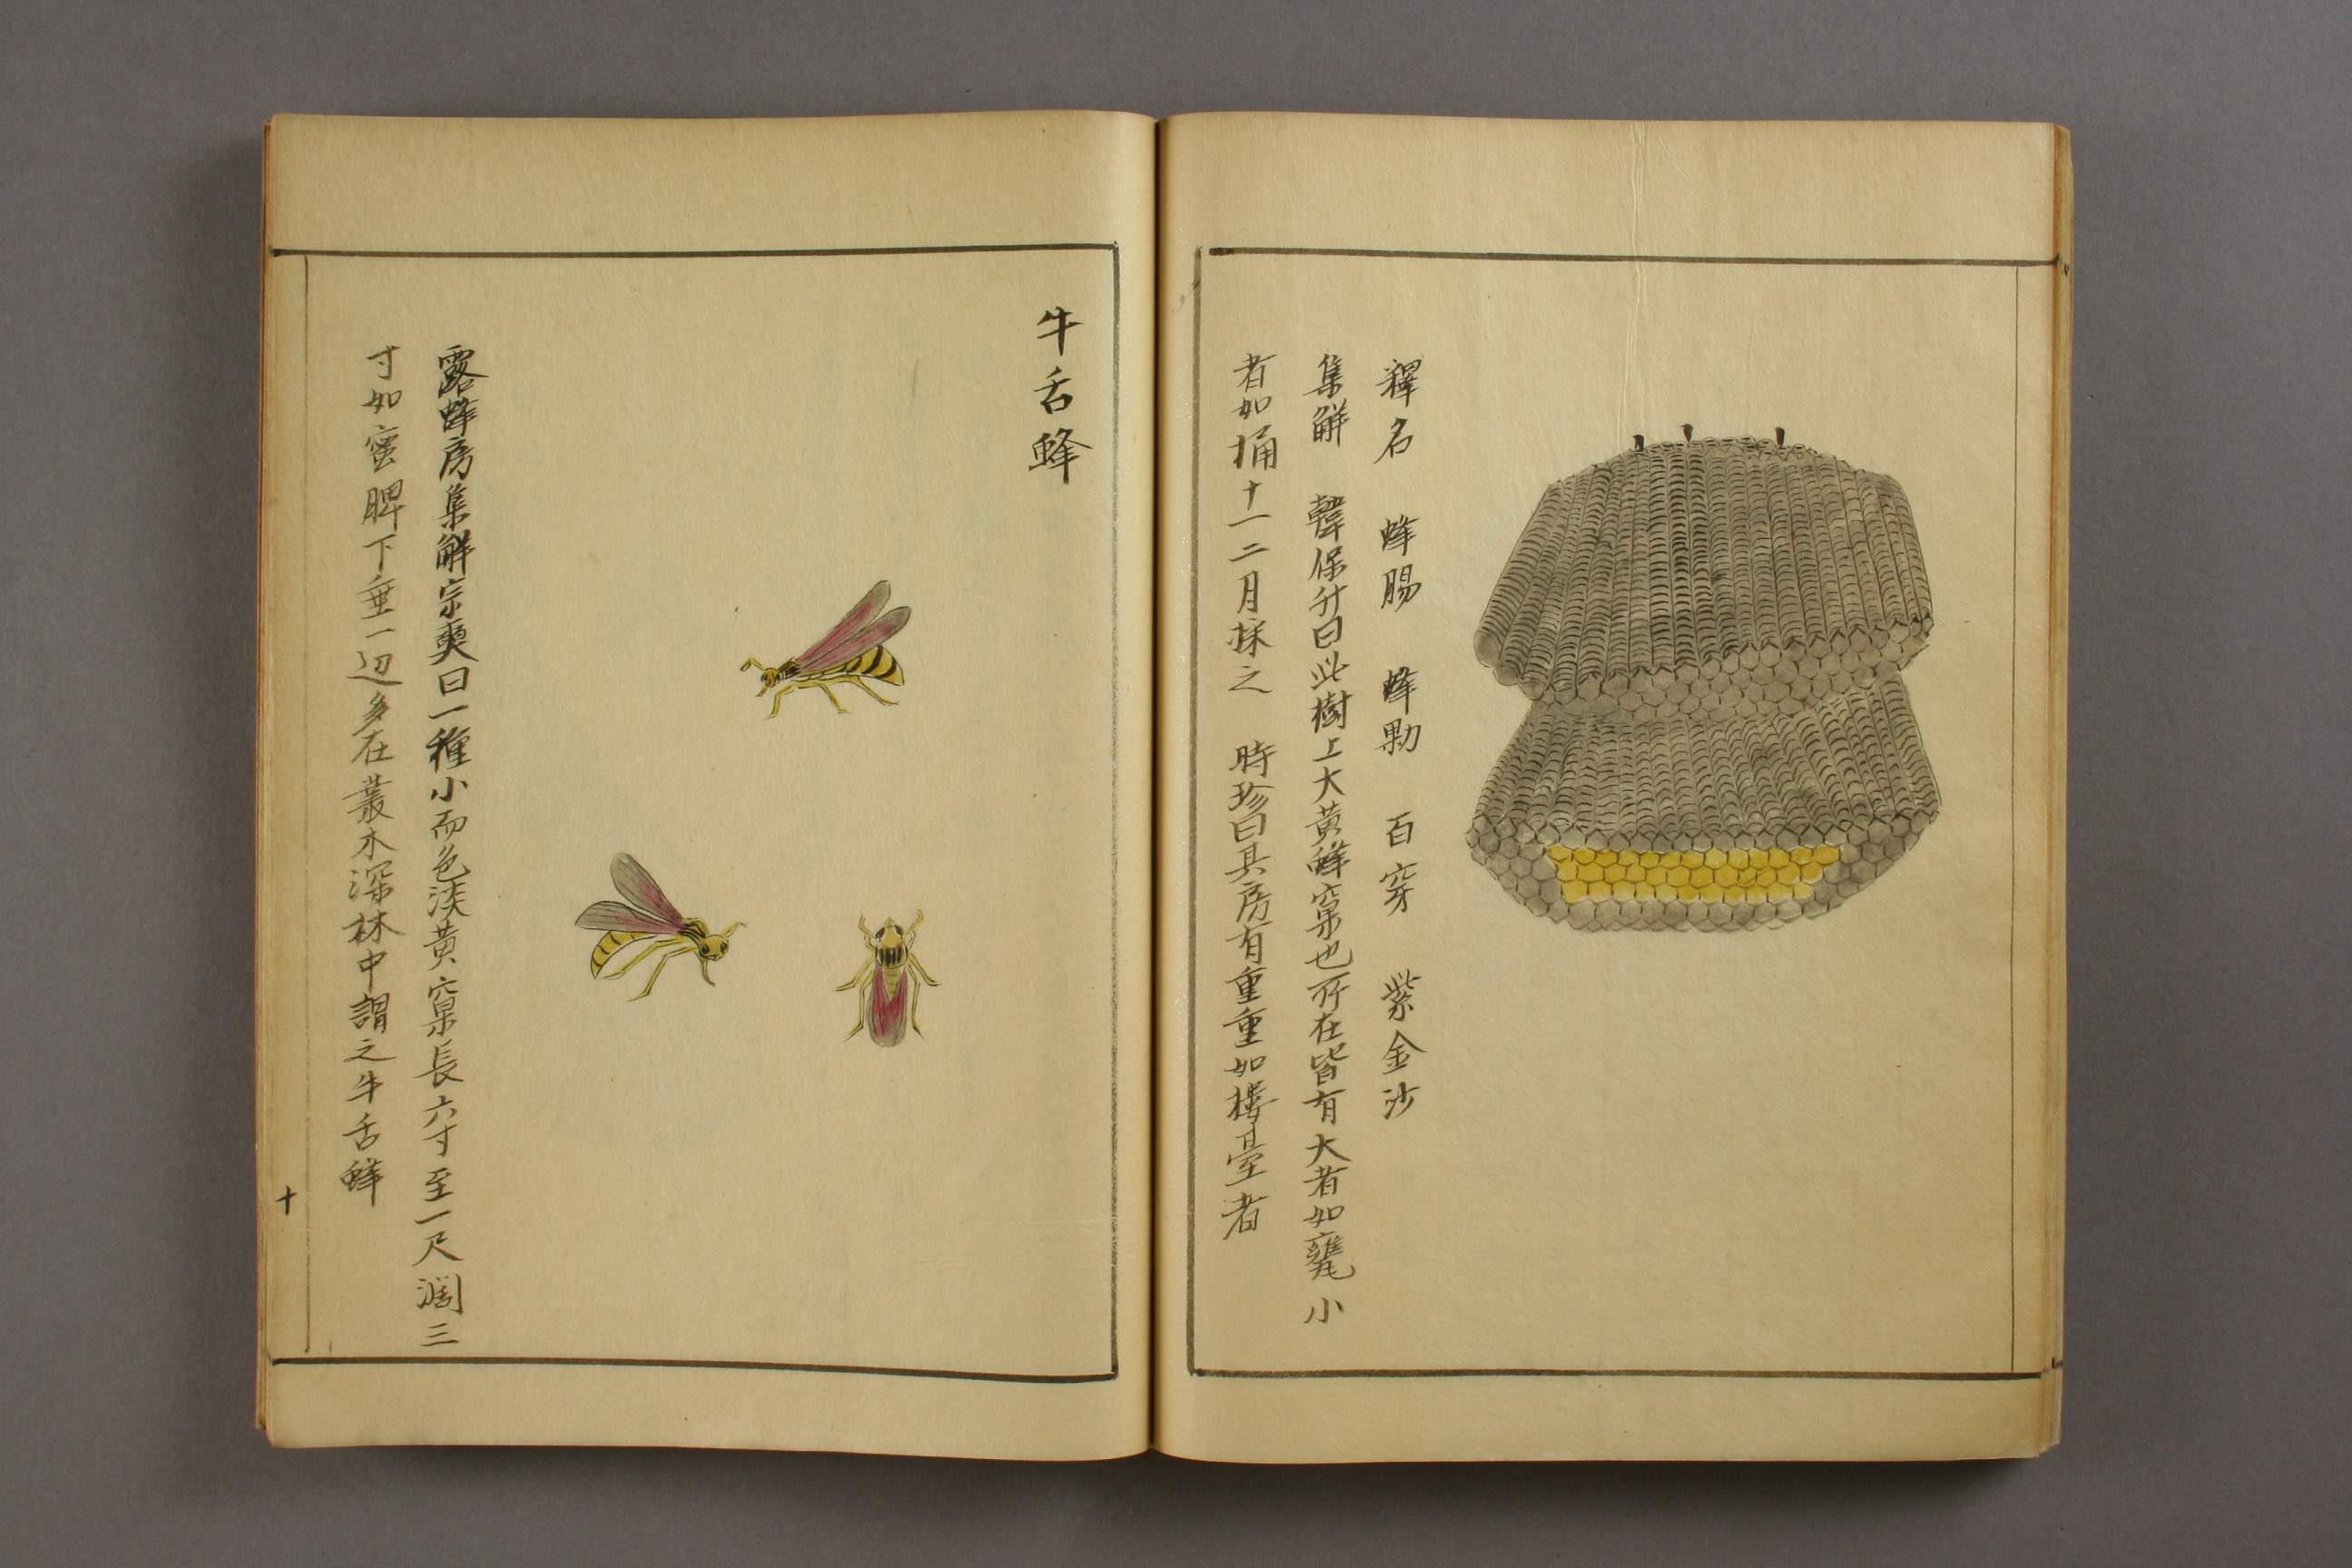 釋名　蜂腸　蜂勦　百穿　紫金沙
集解　韓保升曰此樹上大黃蜂窠也所在皆有大者如甕小
者如桶十一二月採之　時珍曰其房有重重如樓臺者
牛舌蜂
露蜂房集解宗奭曰一種小而色淡黃窠長六寸至一尺濶三
寸如蜜脾下垂一边多在叢木深林中謂之牛舌蜂
十